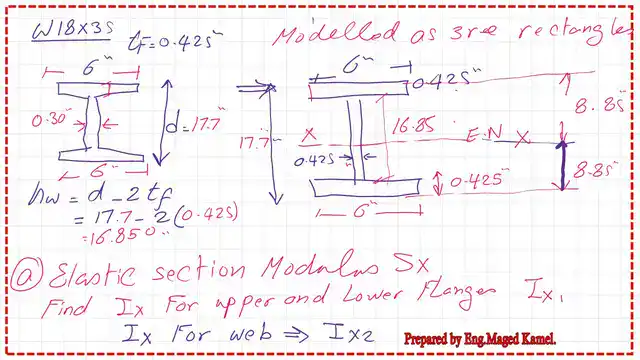 W18X35 tf=0.425" Modelled as 3ree rectangles
6" 6" 0.425"
0.30" d=17.7" 17.7" X 16.85 E.N X 8.85
0.425" 8.85
6" 6" 0.425"
hw = d - 2 tf
= 17.7 - 2 (0.425)
= 16.850"
ⓐ Elastic section Modulus Sx
Find Ix For upper and Lower Flanges Ix1
Ix For web ⇒ Ix2
Prepared by Eng.Maged Kamel.